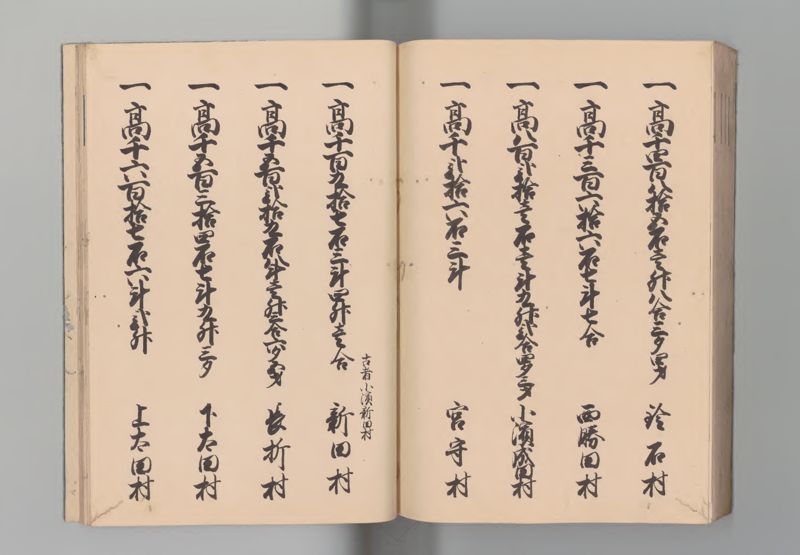 一高千四百八拾五石壱斗八合三夕四才 鈴石村
一高千三百六拾六石七斗七合 西勝田村
一高八百弐拾壱石壱斗九升弐合四夕三才 小濱成田村
一高千弐拾六石三斗 宮守村
古者小濱新田村
一高千百九拾七石三斗四升壱合 新田村
一高千五百弐拾九石八斗壱升三合六夕弐才 長折村
一高千五百三拾四石七斗九升三夕 下太田村
一高千六百拾七石六斗弐升 上太田村